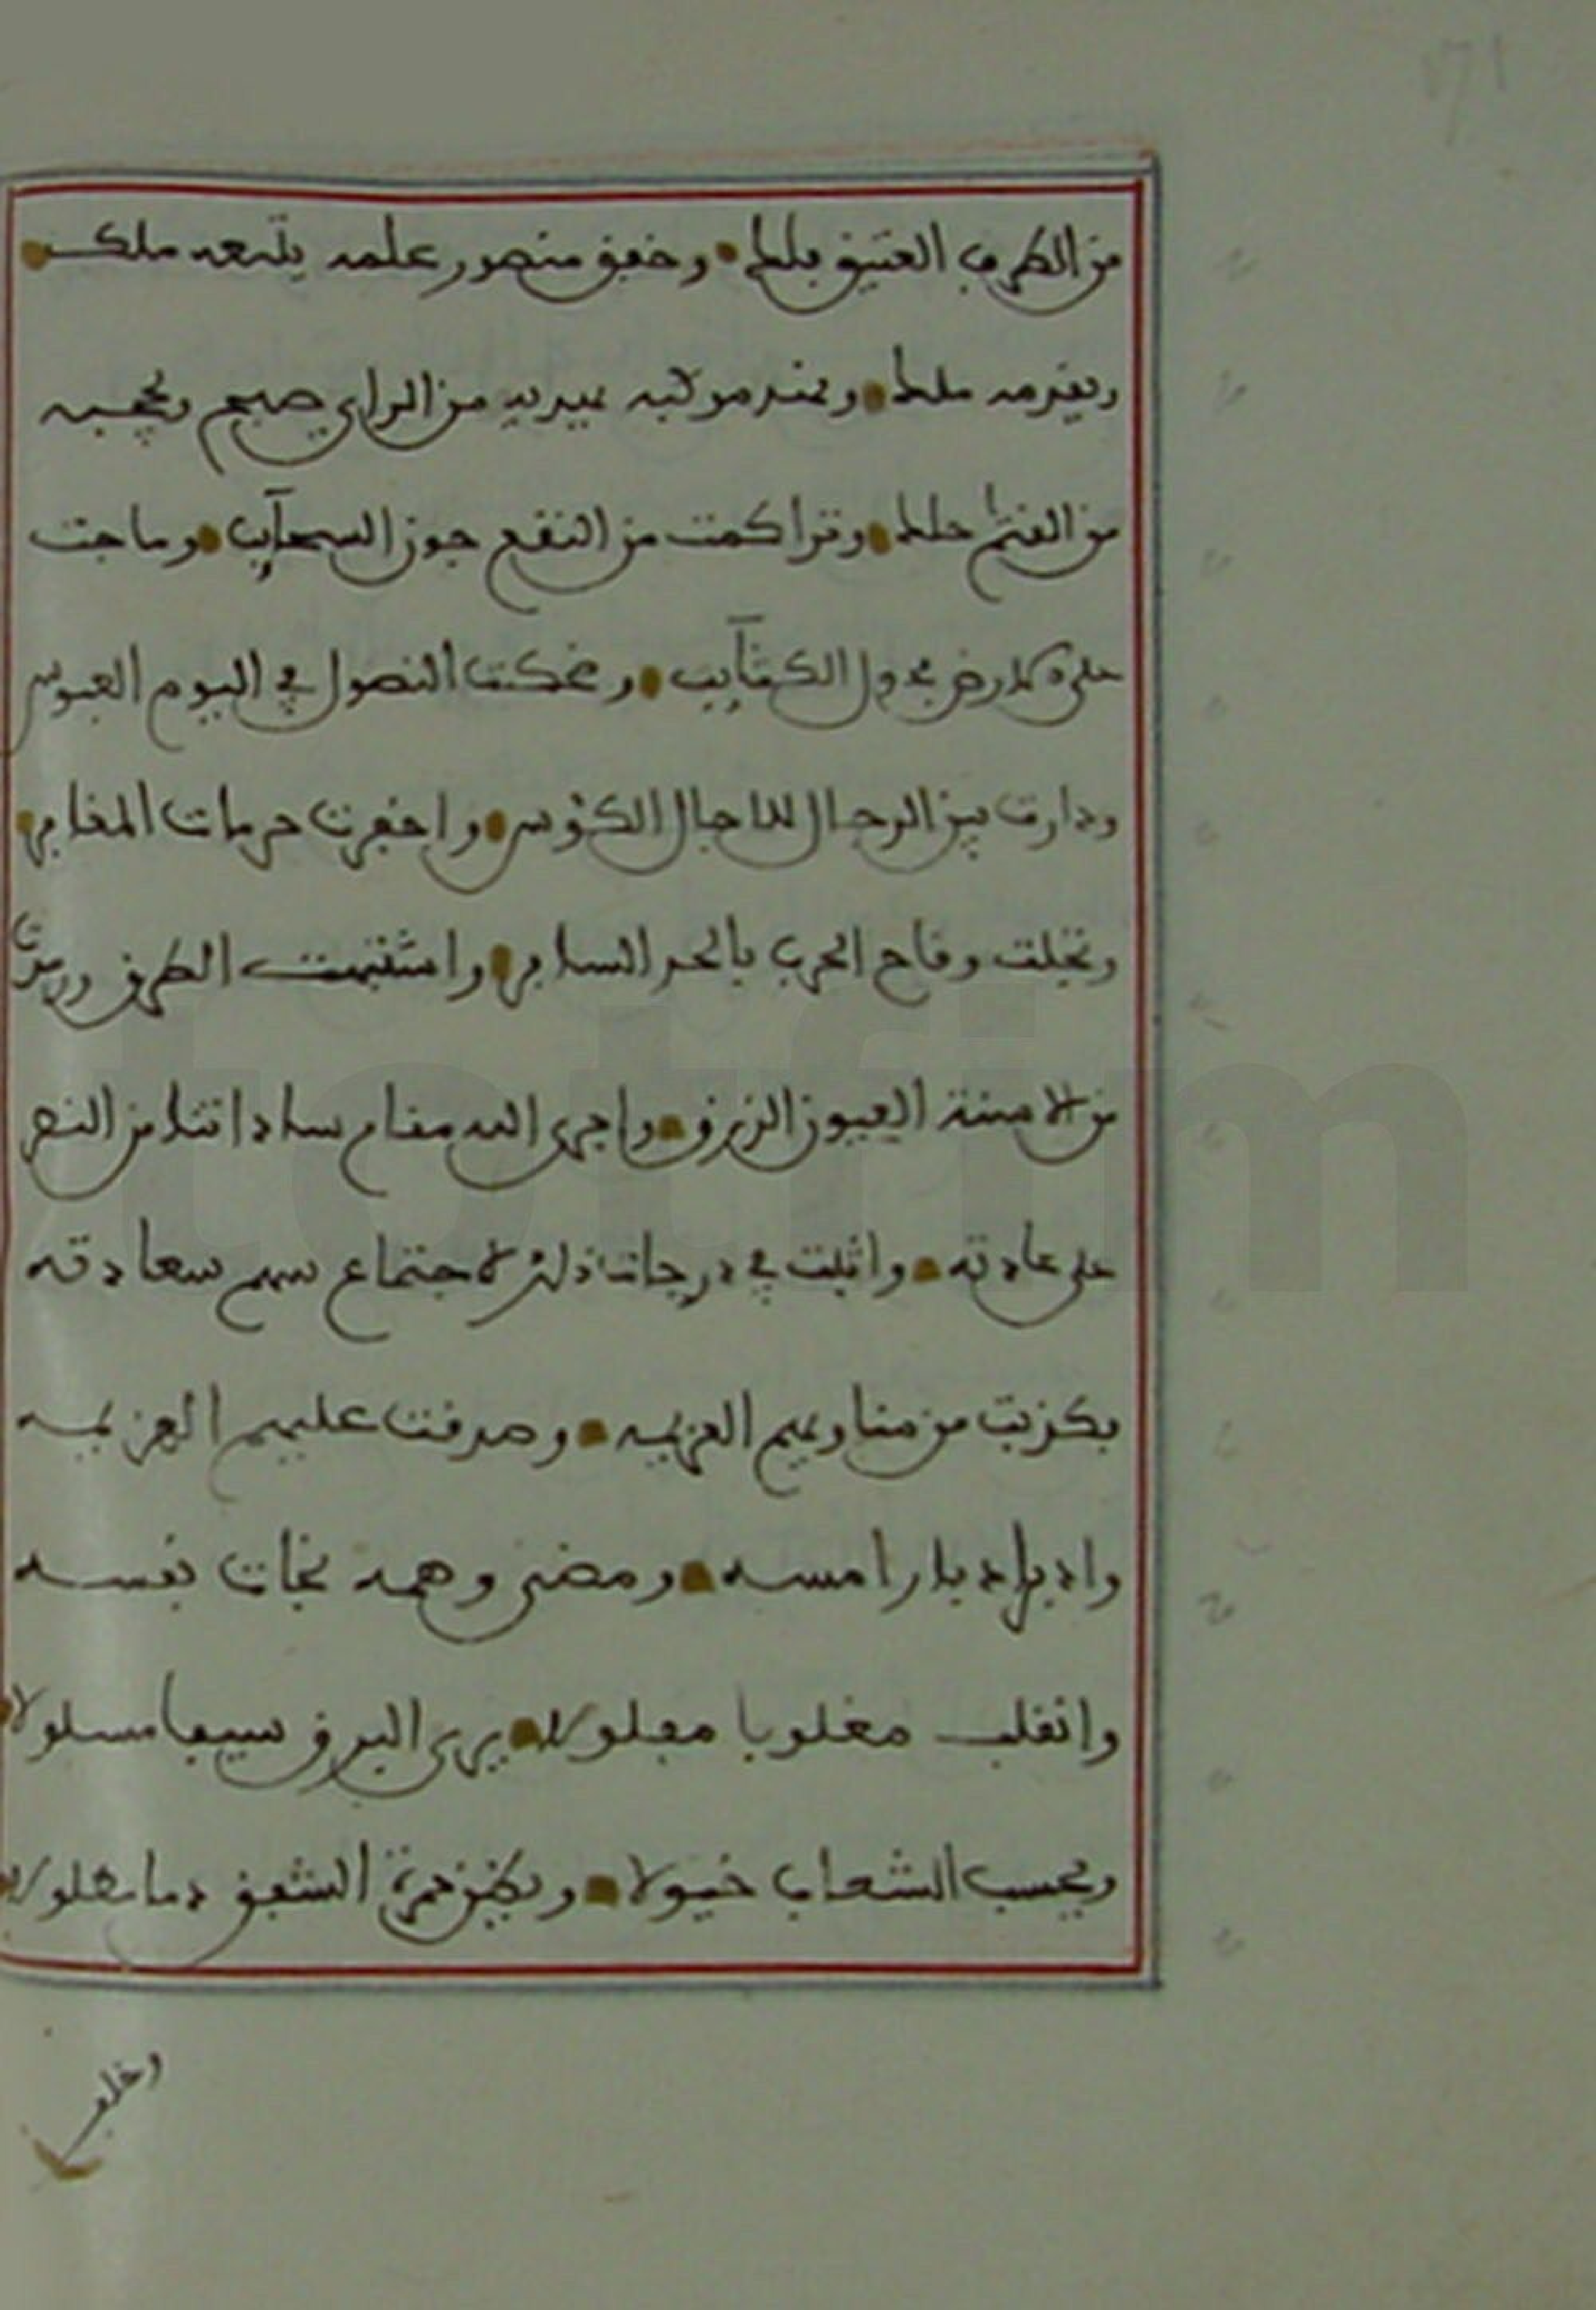 من الظهر العتيق بلط وخفق منصور علمه يتبعه ملك
ويقدمه ملك وعضد موكبه بيديه من الراي صبح ويحجبه
من القتام حلك وتراكمت من النقع جون السحآيب وماجت
على الارض سيول الكتآيب وضحكت النصول في اليوم العبوس
ودارت بين الرجال للاجال الكؤس واخفرت حرمات المغافر
وتخلت وقاح الحرب بالخد السافر واشتبهت الطرق وريعت
من الاسنة العيون الزرق واجرى الله مقام ساداتنا من النصر
على عادته واثبت في درجات ذلك الاجتماع سهم سعادته
بكذبت من مناويهم العزيمه وصدقت عليهم الهزيمه
وادبر ادبار امسه ومضى وهمه نجات نفسه
وانقلب مغلوبا مفلولا يرى البرق سيفا مسلولا
ويحسب الشعاب خيولا ويظن حمرة الشفق دما مطلولا
وخلو
171
totfim